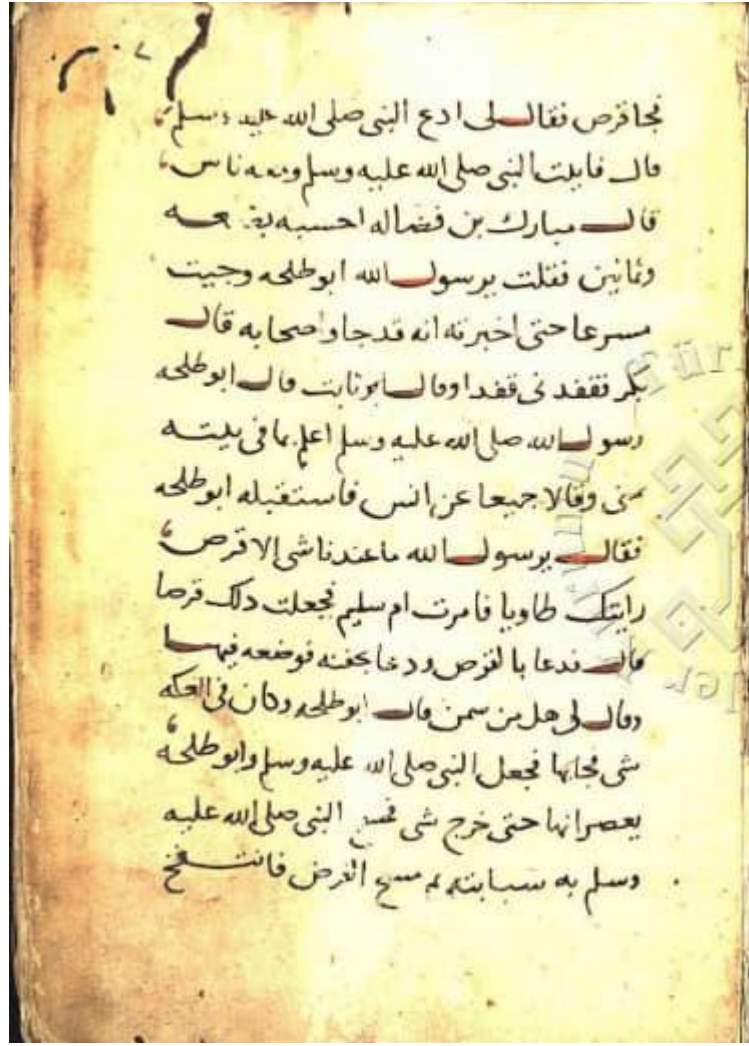 فجا قرص فقال لى ادع النبى صلى الله عليه وسلم
قال فاتيت النبى صلى الله عليه وسلم ومعه ناس
قال مبارك بن فضاله احسبه بضعه
وثمانين فقلت يرسول الله ابو طلحه وجيت
مسرعا حتى اخبرته انه قد جا واصحابه قال
بكر فقفدنى قفدا وقال ثابت قال ابو طلحه
رسول الله صلى الله عليه وسلم اعلم بما فى بيته
منى وقالا جميعا عن انس فاستقبله ابو طلحه
فقال يرسول الله ما عندنا شى الا قرص
رايتك طاويا فامرت ام سليم فجعلت ذلك قرصا
قال فدعا بالقرص ودعا بجفنه فوضعه فيها
وقال لى هل من سمن قال ابو طلحه وكان فى العكه
شى فجا بها فجعل النبى صلى الله عليه وسلم وابو طلحه
يعصرانها حتى خرج شى فمسح النبى صلى الله عليه
وسلم به سبابته ثم مسح القرص فانتفخ